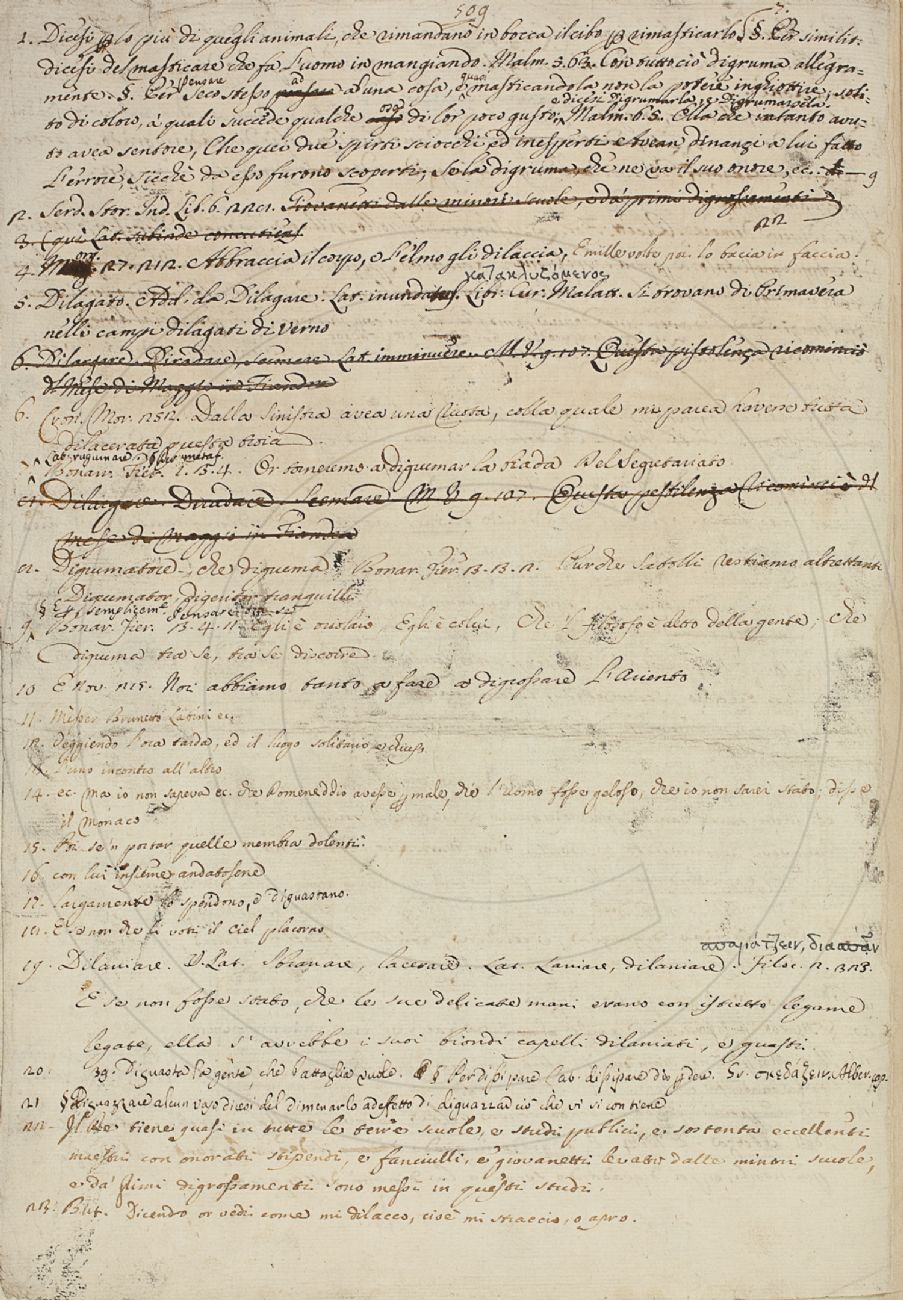 509
1. Dicesi p lo più di quegli animali, che rimandano in bocca il cibo p rimasticarlo. §. Per similit-
dicesi del masticare che fa l'uomo in mangiando. Malm. 5.63. Con tutto ciò digruma allegra-
mente. §. Per pensare seco stesso a d'una cosa, e quasi masticandola non la potere inghiottire, soli-
to di coloro, a' quali succede qualche cosa di lor poco gusto, e dicesi digrumarla, e Digrumarsela. Malm. 6.5. Ella che intanto avu-
to avea sentore, Che quei due spirti sciocchi ed inesperti Avean dinanzi a lui fatto
l'errore, Sicchè da esso furono scoperti, Se la digruma, chè ne va il suo onore, ec.
2. Serd. Stor. Ind. Lib. 6. 221. Giovanetti dalle minori scuole, e da' primi digrossamenti
22
3. (qui Lat. subinde
4. 27. 212. Abbraccia il corpo, e l'elmo gli dilaccia, E mille volte poi lo bacia in faccia.
κατακλυζόμενος
5. Dilagato. Add. da Dilagare. Lat. inundatus. Libr. Cur. Malatt. Si trovano di Primavera
nelli campi dilagati di verno
6. Dilargare. Diradare, scemare. Lat. imminuere. M. V. 9. 107. Questa pistolenza ricominciò
del Mese di Maggio in Fiandra
6. Cron. Mor. 252. Dalla sinistra avea una Ruota, colla quale mi parea havere tutta
dilacerata questa troia.
Lat. rugumare. p metaf.
Bonar. Fier. 1. 5. 4. Or taneremo a digrumar la strada Del Segretariato
Dilargare. Diradare. Scemare M. V. 9. 107. Questa pestilenza Ricominciò del
mese di Maggio in Fiandra
Digrumatore, che digruma Bonar. Fier. 3. 3. 2. Purchè satolli restiamo altrettanti
Digrumator, digeritor tranquilli
§ E semplicemte. Pensare tra se
9. Bonar. Fier. 3. 4. 11. Egli è ovolaio, Egli è colui, Che 'l filosofo è alto della gente; Che
digruma tra se, tra se discorre.
10 E Nov. 215. Noi abbiamo tanto a fare a digrossare l'Ariento
11. Messer Brunetto Latini ec.
12. Veggiendo l'ora tarda, ed il luogo solitario, e chiuso
13. l'uno incontro all'altro
14. ec. Ma io non sapeva ec. che Domeneddio avesse p male, che l'uomo fosse geloso, che io non sarei stato; disse
il Monaco
15. Poi se 'n portar quelle membra dolenti.
16. con lui insieme andatosene
17. largamente lo spendono, e diguastano.
18. E se non che li voti il ciel placorno
σπαράττειν, διασπᾶν
19. Dilaniare. V. Lat. Sbranare, lacerare. Lat. laniare, dilaniare. Filoc. 2. 323.
E se non fosse stato, che le sue delicate mani erano con istretto legame
legate, ella s'avrebbe i suoi biondi capelli dilaniati, e guasti.
20. 39. Diguasta la gente che battaglia vuole. § Per dissipare Lat. dissipare disperdere. Gr. σκεδάζειν. Alber. cap.
21 § Diguazzare alcun vaso dicesi del dimenarlo ad effetto di diguazzar ciò che vi si contiene
22. Il Re tiene quasi in tutte le terre scuole, e studi publici, e sostenta eccellenti
maestri con onorati stipendi, e fanciulli, e giovanetti levati dalle minori scuole,
e da' primi digrossamenti sono messi in questi studi.
23. But. Dicendo or vedi come mi dilacco, cioè mi straccio, o apro.